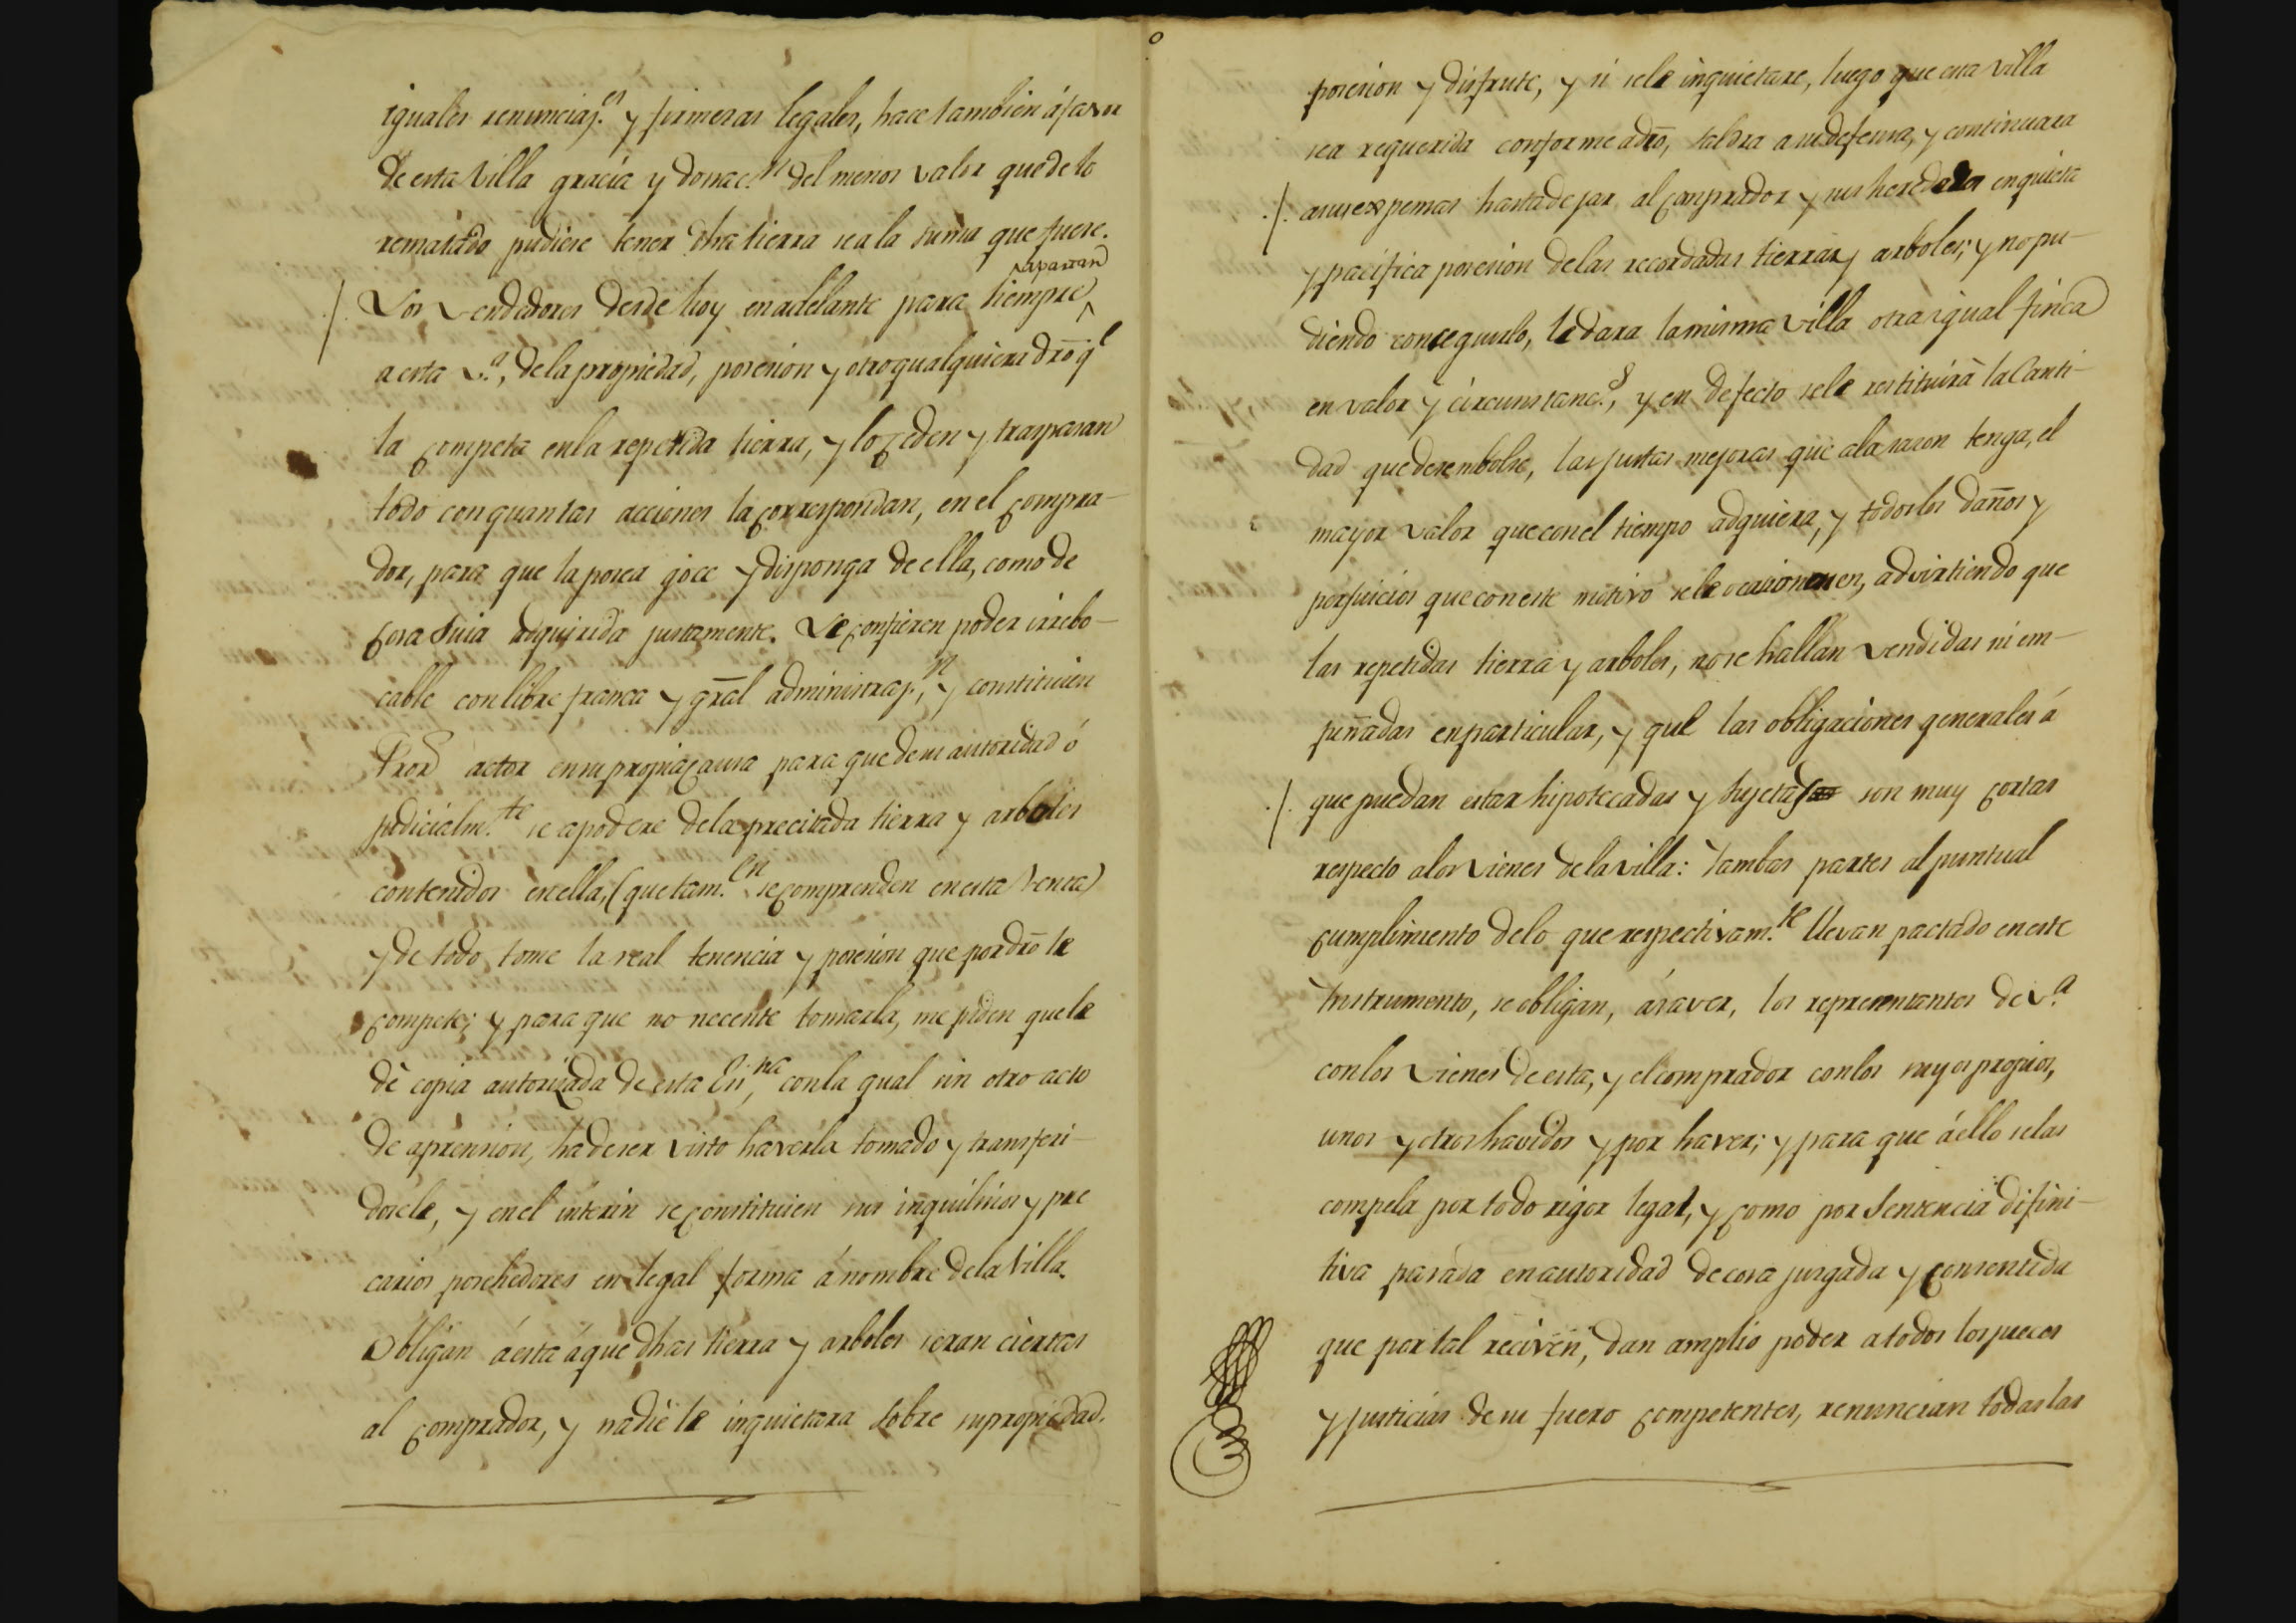 iguales renunciaz.es y firmesas legales, hace tambien á favor
de esta Villa gracia y donac.n del menos valor que de lo
rematado pudiese tener dha tierra sea la suma que fuere.
apartan
Los vendedores desde hoy en adelante para siempre
a esta V.a, de la propiedad, posesion y otro qualquiera dro q.e
la competa en la repetida tierra, y lo zeden y traspasan
todo con quantas acciones la correspondan, en el compra-
dor, para que la posea goce y disponga de ella, como de
cosa suia adquirida justamente. Le confieren poder irrebo-
cable con libre franca y gral administraz.n, y constituien
Pror actor en su propia causa para que de su autoridad ó
judicialm.te se apodere de la precitada tierra y arboles
contenidos en ella, (que tam.en se comprenden en esta venta)
y de todo tome la real tenencia y posesion que por dro le
compete; y para que no necesite tomarla, me piden que le
dé copia autorizada de esta Es.ra, con la qual sin otro acto
de aprension, ha de ser visto haverla tomado y transferi-
dosele, y en el interin se constituien sus inquilinos y pre
carios posehedores en legal forma á nombre de la Villa.
Obligan á esta á que dhas tierra y arboles seran ciertas
al comprador, y nadie le inquietara sobre su propiedad.
posesion y disfrute, y si se le inquietare, luego que esta Villa
sea requerida conforme a dro, saldra a su defensa, y continuara
a sus expensas hasta dejar al comprador y sus herederos en quieta
y pacifica posesion de las recordadas tierras y arboles; y no pu-
diendo conseguirlo, le dara la misma Villa otra igual finca
en valor y circunstanc.s, y en defecto se le restituirá la Canti-
dad que desembolse, las justas mejoras que a la sason tenga, el
mayor valor que con el tiempo adquiera, y todos los daños y
perjuicios que con este motivo se le ocasionen, advirtiendo que
las repetidas tierra y arboles, no se hallan vendidas ni em-
peñadas en particular, y que las obligaciones generales á
que puedan estar hipotecadas y sujetas son muy cortas
respecto a los vienes de la villa: Yambas partes al puntual
cumplimiento de lo que respectivam.te llevan pactado en este
Instrumento, se obligan, á saver, los representantes de V.a
con los vienes de esta, y el comprador con los suyos propios,
unos y otros havidos y por haver; y para que á ello se las
compela por todo rigor legal, y como por Sentencia difini-
tiva pasada en autoridad de cosa jusgada y consentida
que por tal reciven, dan amplio poder a todos los jueces
y Justicias de su fuero competentes, renuncian todas las